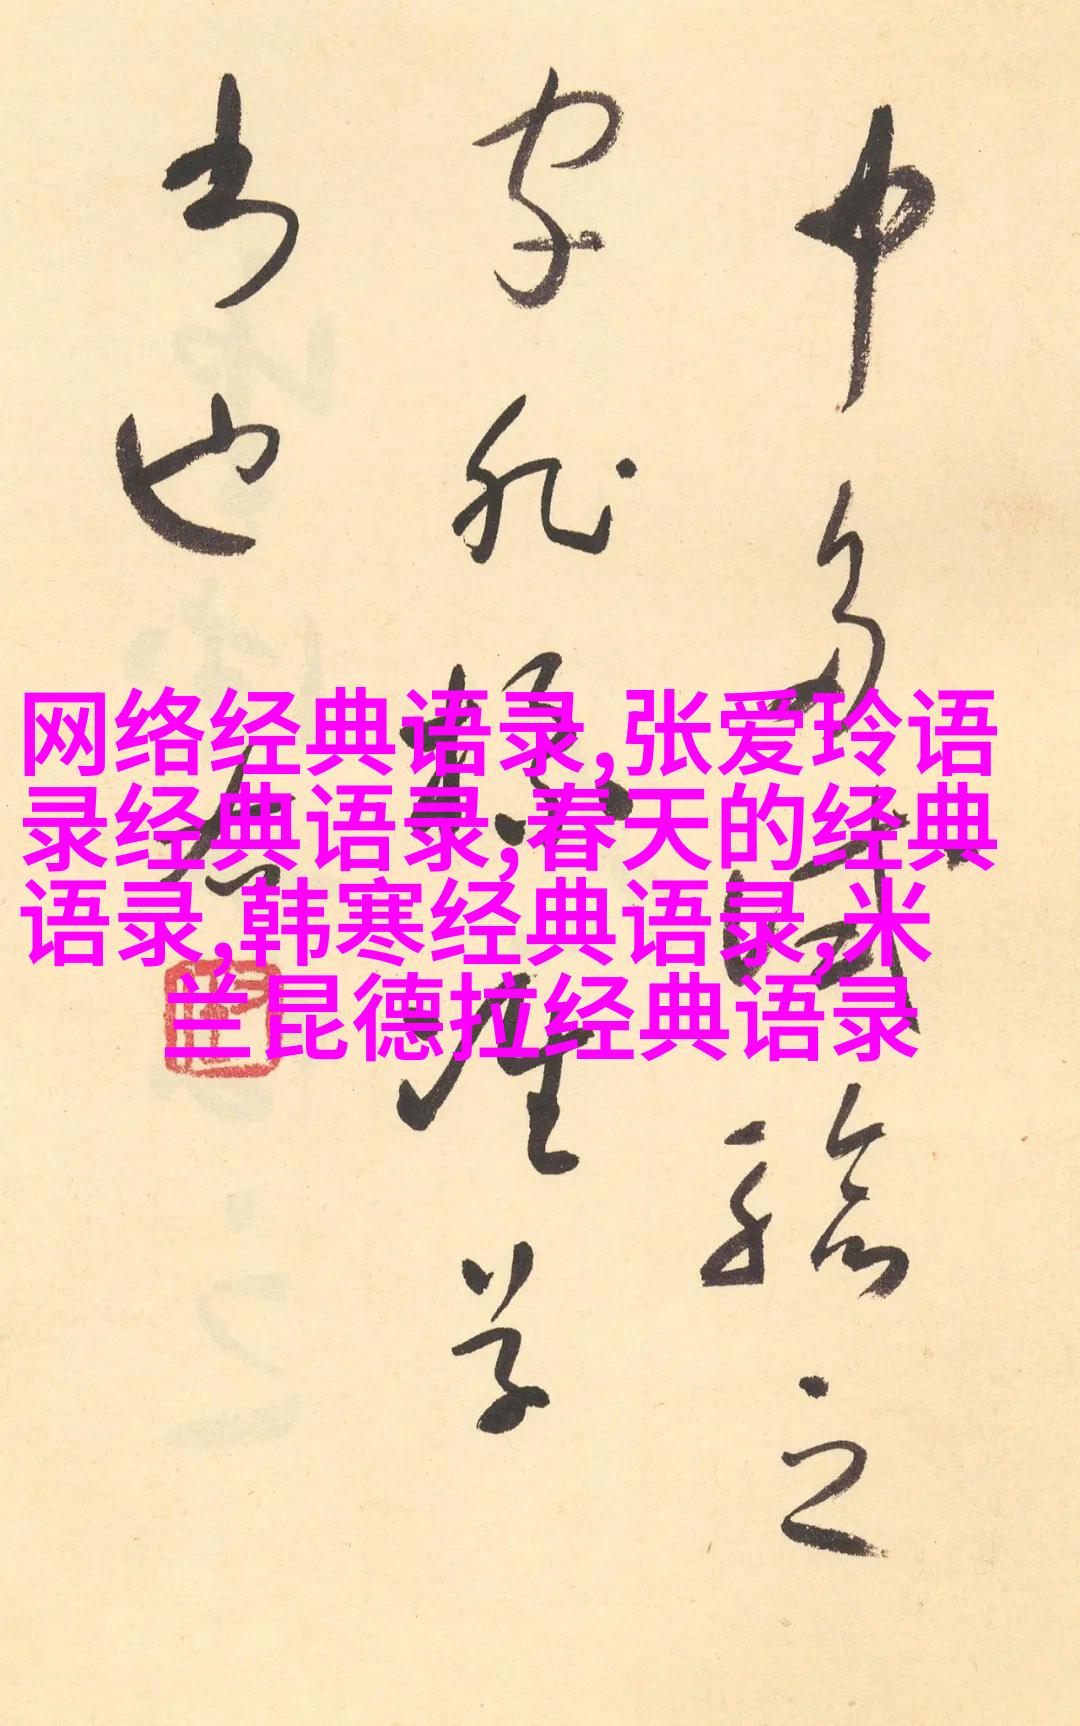 中多試驗之
字非極難學
者也
右
网络经典语录,张爱玲语
录经典语录,春天的经典
语录,韩寒经典语录,米
兰昆德拉经典语录